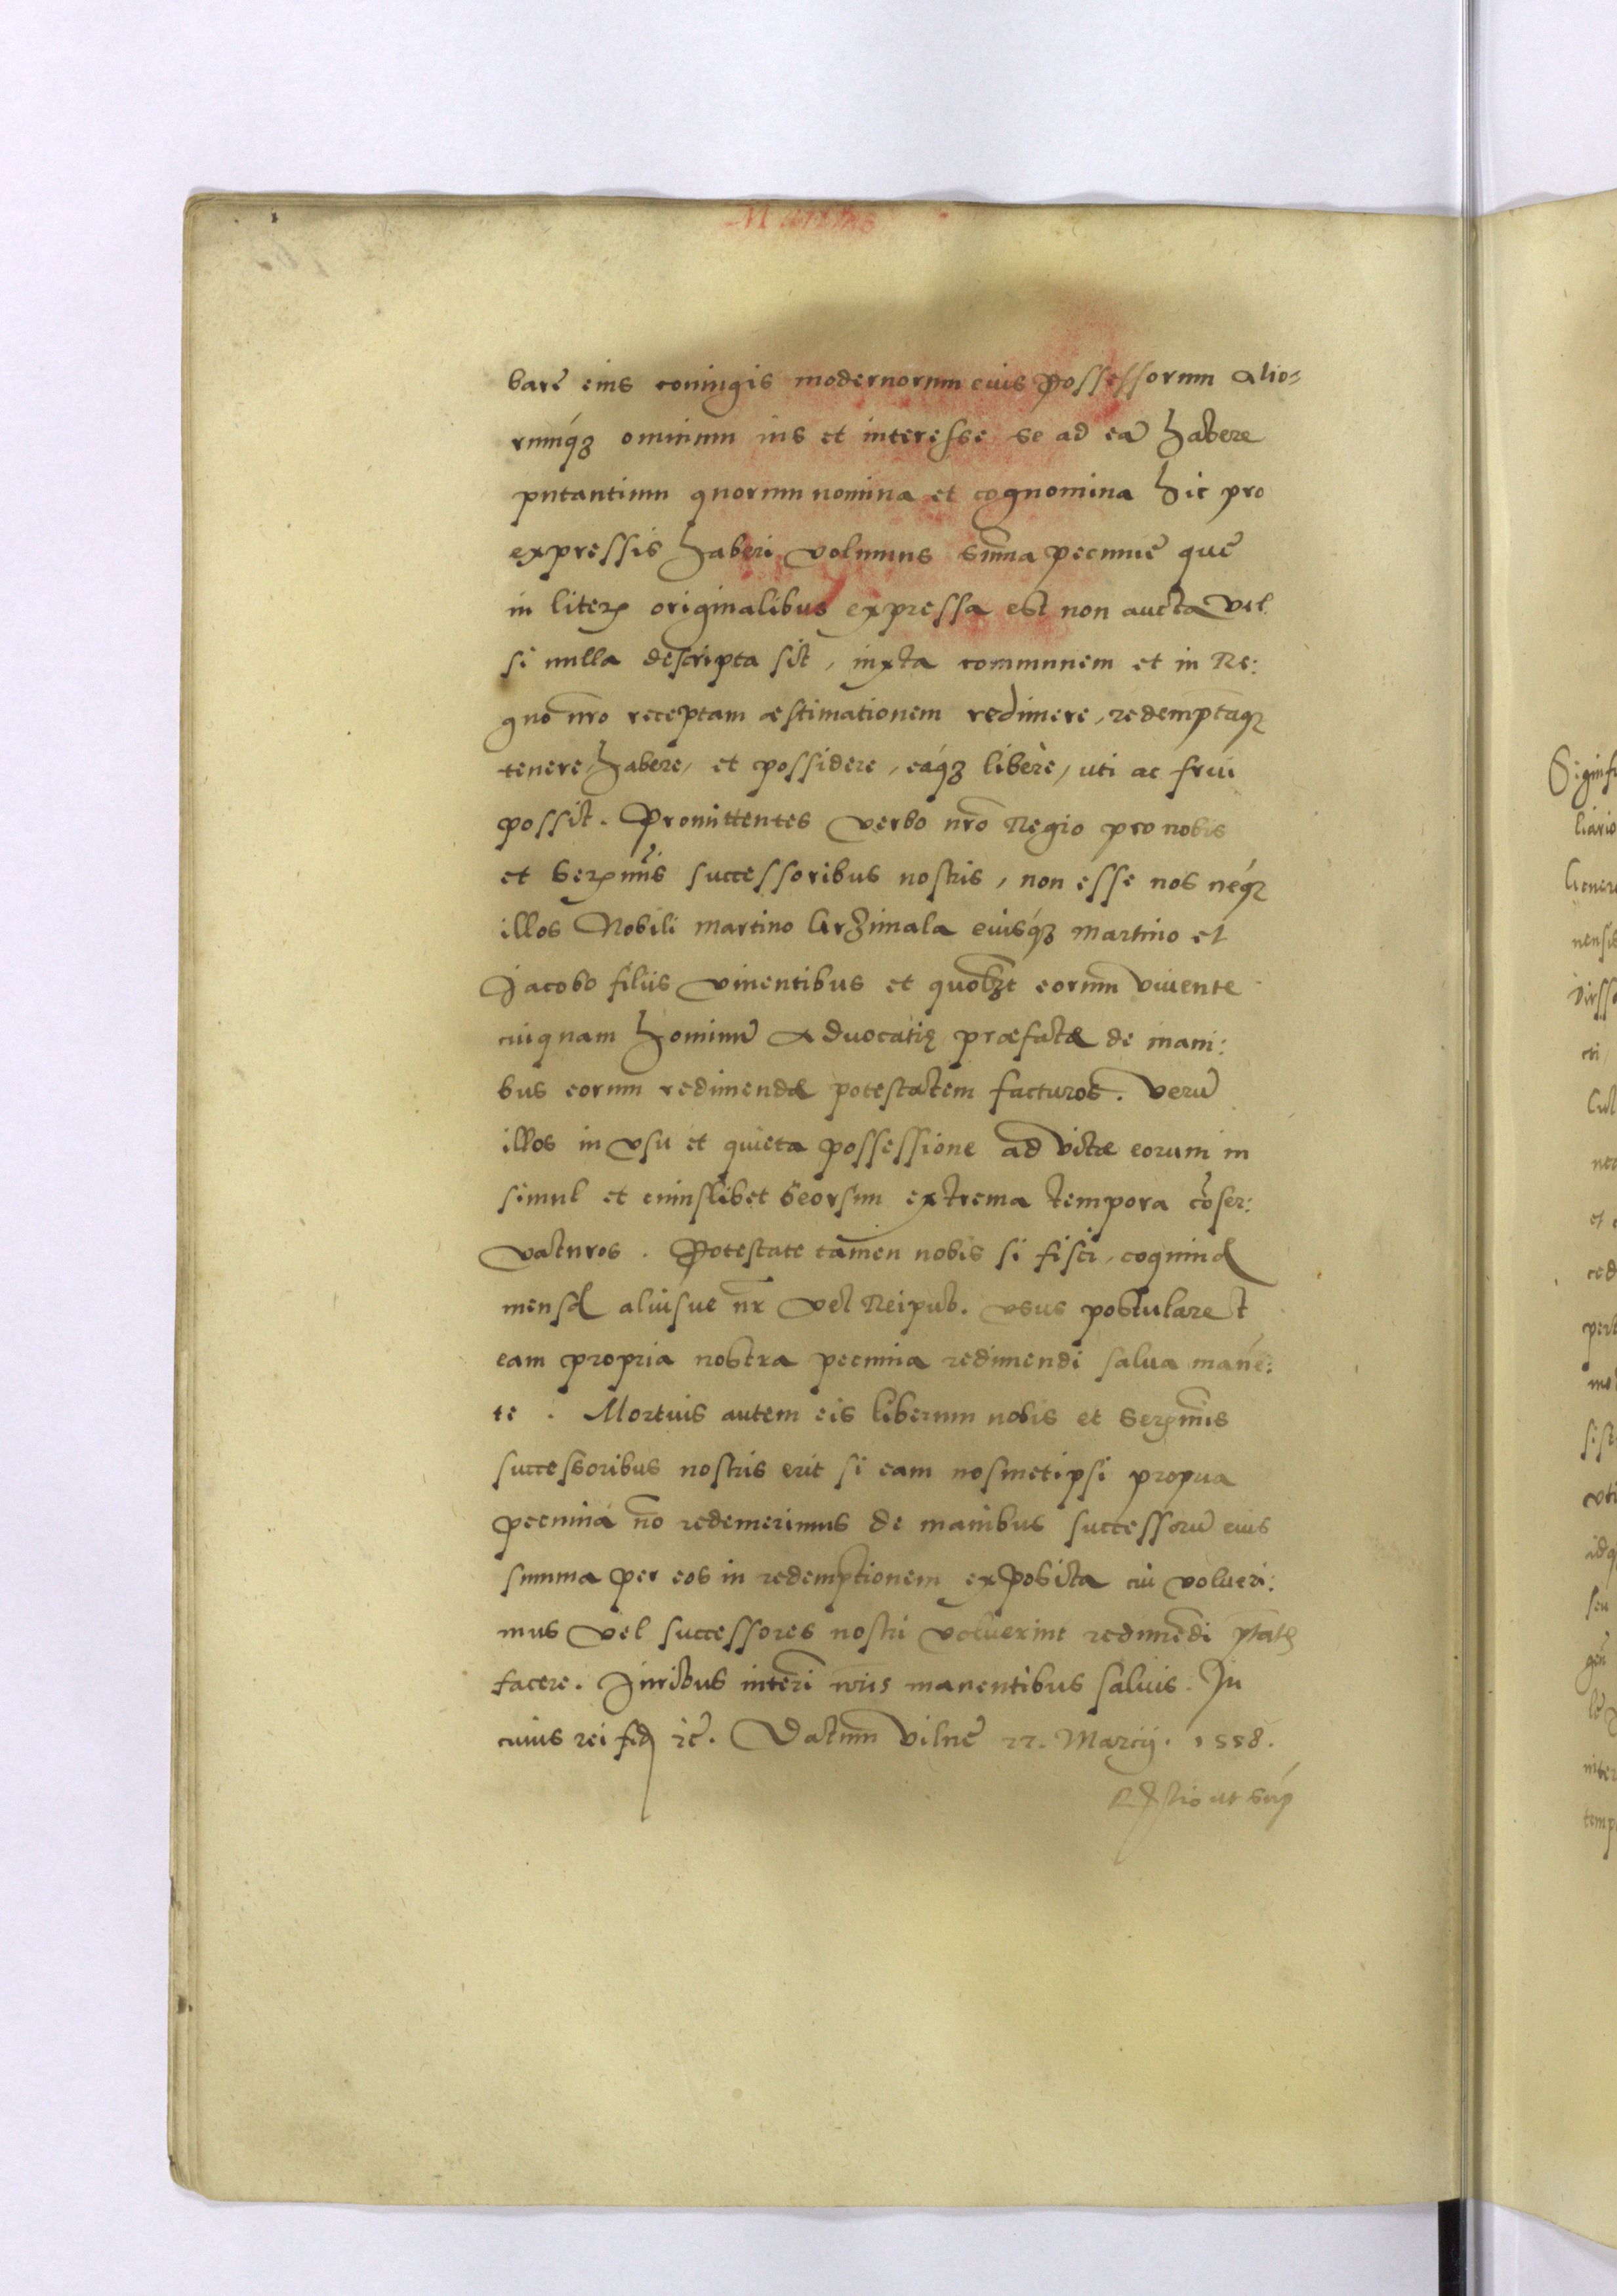 barē eius coniugis modernorum eius possessorum alio=
rumq́ꝫ ominum ius et interesse se ad eā habere
putantium quorum nomina et cognomina hic pro
expressis haberi volumus sum̄a pecuniē quē
in literꝭ originalibus expressa est non aucta vel
si nulla descripta sit, iuxta communem et in Re:
gno nr̄o receptam æstimationem redimere, redemptāqꝫ
tenere, habere, et possidere, eáqꝫ liberè, uti ac frui
possit. Promittentes verbo nr̄o Regio pro nobis
et Serꝫmis successoribus nostris, non esse nos neq́ꝫ
illos Nobili Martino Krzimala eiusq́ꝫ Martino et
Jacobo filiis viuentibus et quolꝫt eorum viuente
cuiquam hominū Aduocatię præfatæ de mani:
bus eorum redimendæ potestatem facturos. verū
illos in vsu et quieta possessione ad vitæ eorum in
simul et cuiuslibet seorsim extrema tempora cōser:
vaturos. Potestate tamen nobis si fisci, coquinæ
mensæ aliusue nr̄ vel Reipub. vsus postularet
eam propria nostra pecunia redimendi salua manē:
te. Mortuis autem eis liberum nobis et Serꝫmis
successoribus nostris erit si eam nosmetipsi propria
pecunia nō redemerimus de manibus successorū eius
summa per eos in redemptionem exposita cui volueri:
mus vel successores nostri voluerint redimēdi p̄tatē
facere. Juribus interī nr̄is manentibus saluis. In
cuius rei fid ꝛc̄. Datum Vilnē 22. Marcij. 1558.
Rłtio ut sup̄